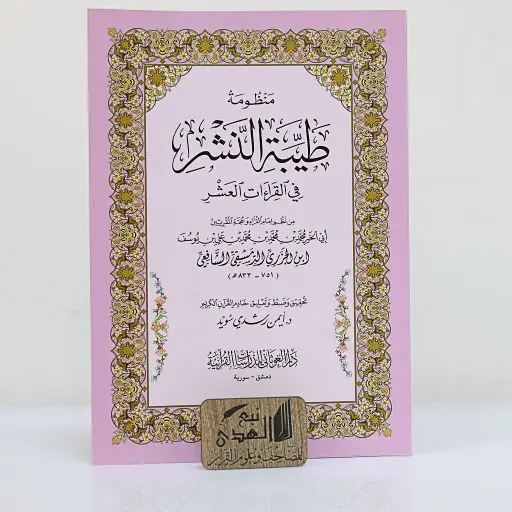 مَنْظُومَةُ
طَيِّبَةِ النَّشْرِ
فِي القِرَاءَاتِ العَشْرِ
مِن نَظْمِ إِمَامِ القُرَّاءِ وَحُجَّةِ المُقْرِئِينَ
أَبِي الخَيْرِ مُحَمَّدِ بْنِ مُحَمَّدِ بْنِ مُحَمَّدِ بْنِ عَلِيِّ بْنِ يُوسُفَ
ابْنِ الجَزَرِيِّ الدِّمَشْقِيِّ الشَّافِعِيِّ
(٧٥١ - ٨٣٣ هـ)
تحقيق وضبط وتعليق خادم القرآن الكريم
د. أيمن رشدي سويد
دار الغوثاني للدراسات القرآنية
دمشق - سورية
نبع
الهدى
لمصاحف وعلوم القرآن